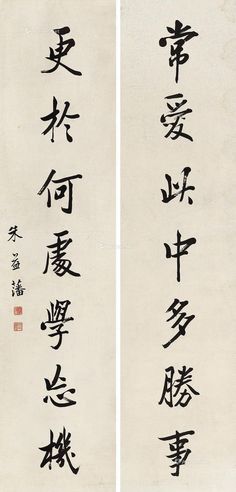 常愛此中多勝事
更於何處學忘機
朱益藩